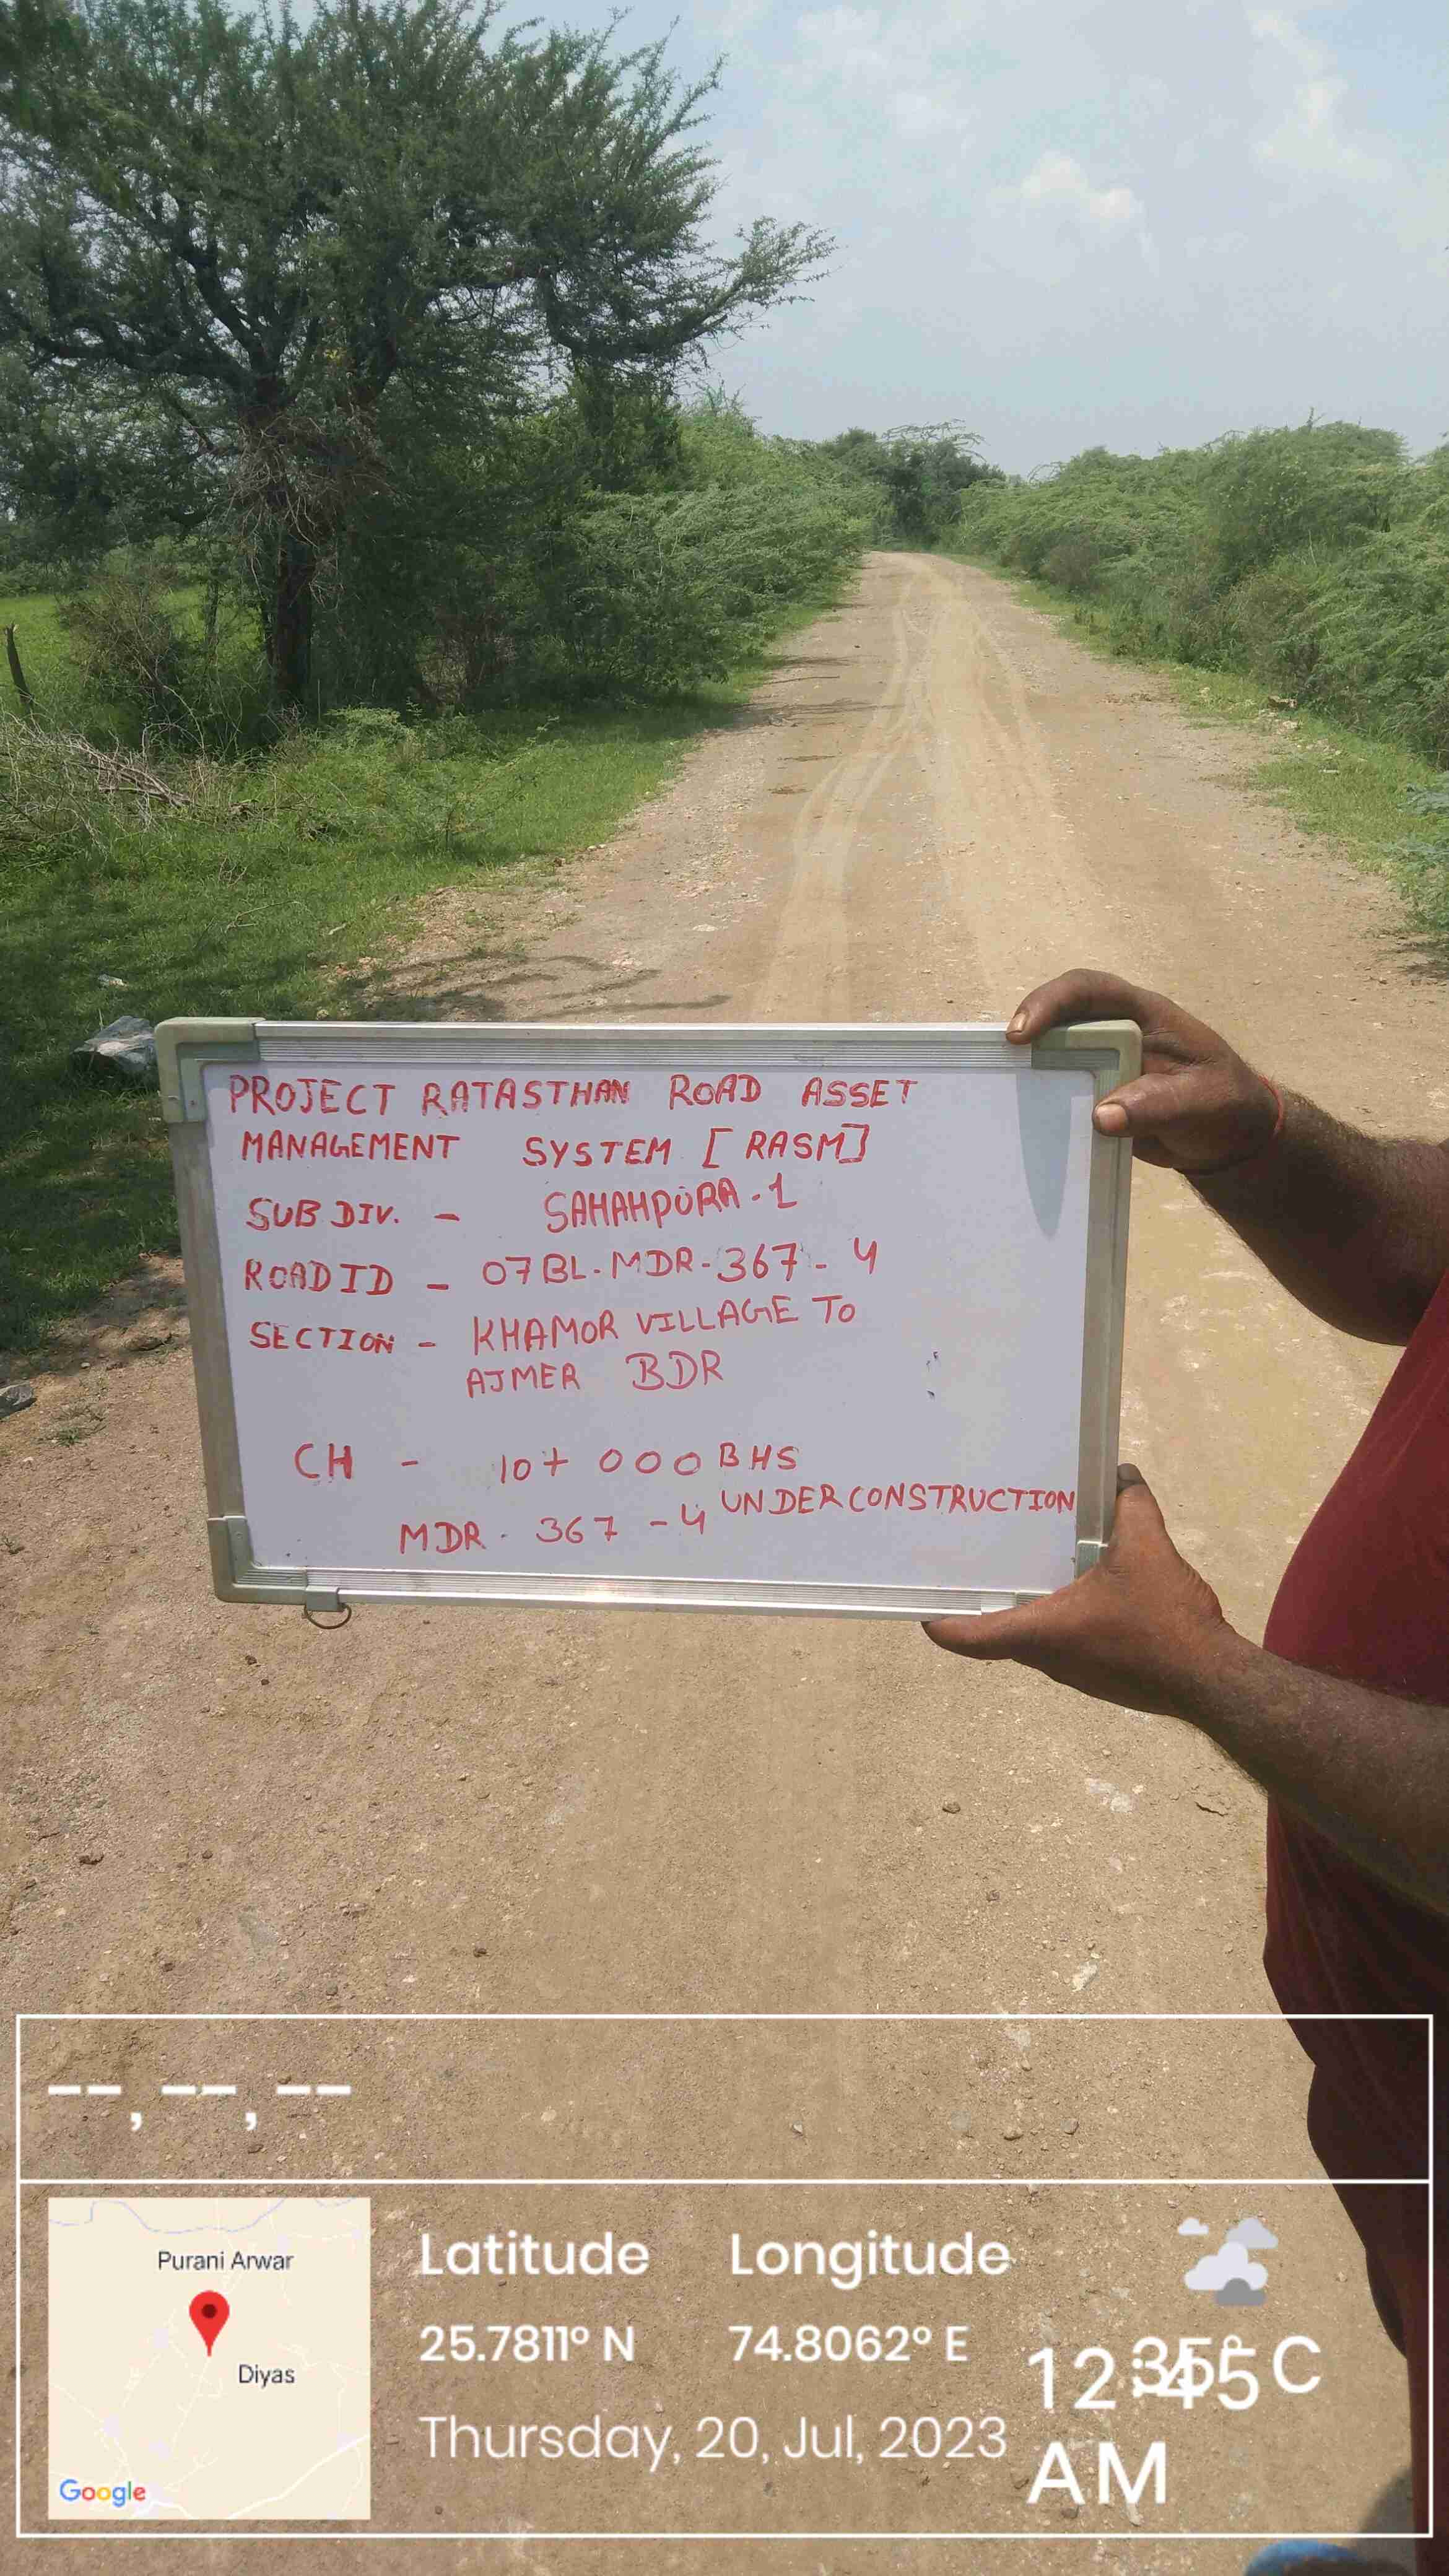 PROJECT RATASTHAN ROAD ASSET
MANAGEMENT SYSTEM [RASM]
SUB DIV. - SAHAHPURA-1
ROAD ID - 07BL-MDR-367-4
SECTION - KHAMOR VILLAGE TO
AJMER BDR
CH - 10+000 BHS
UNDER CONSTRUCTION
MDR-367-4
--, --, --
Purani Arwar
Diyas
Google
Latitude Longitude
25.7811° N 74.8062° E
Thursday, 20, Jul, 2023
AM